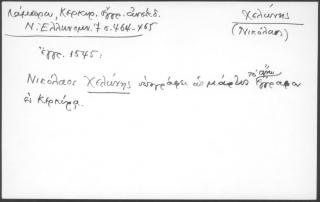 Λάμπρου, Κερκυρ. ἔγγρ. ἀνεκδ.
Ν. Ἑλληνομν. 7 σ. 464-465
Χελώνης
(Νικόλαος)
Ἔγγρ. 1545:
Νικόλαος Χελώνης ὑπογράφει ὡς μάρτυς ἔγγραφα
ἐν Κερκύρᾳ.